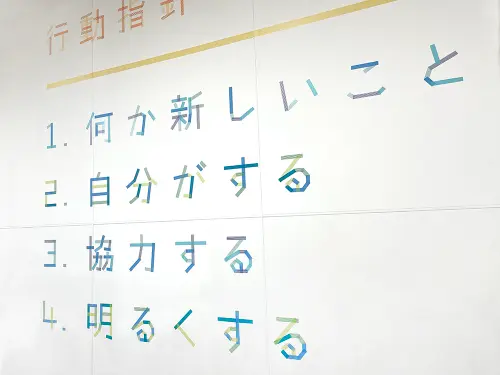 行動指針
1. 何か新しいこと
2. 自分がする
3. 協力する
4. 明るくする